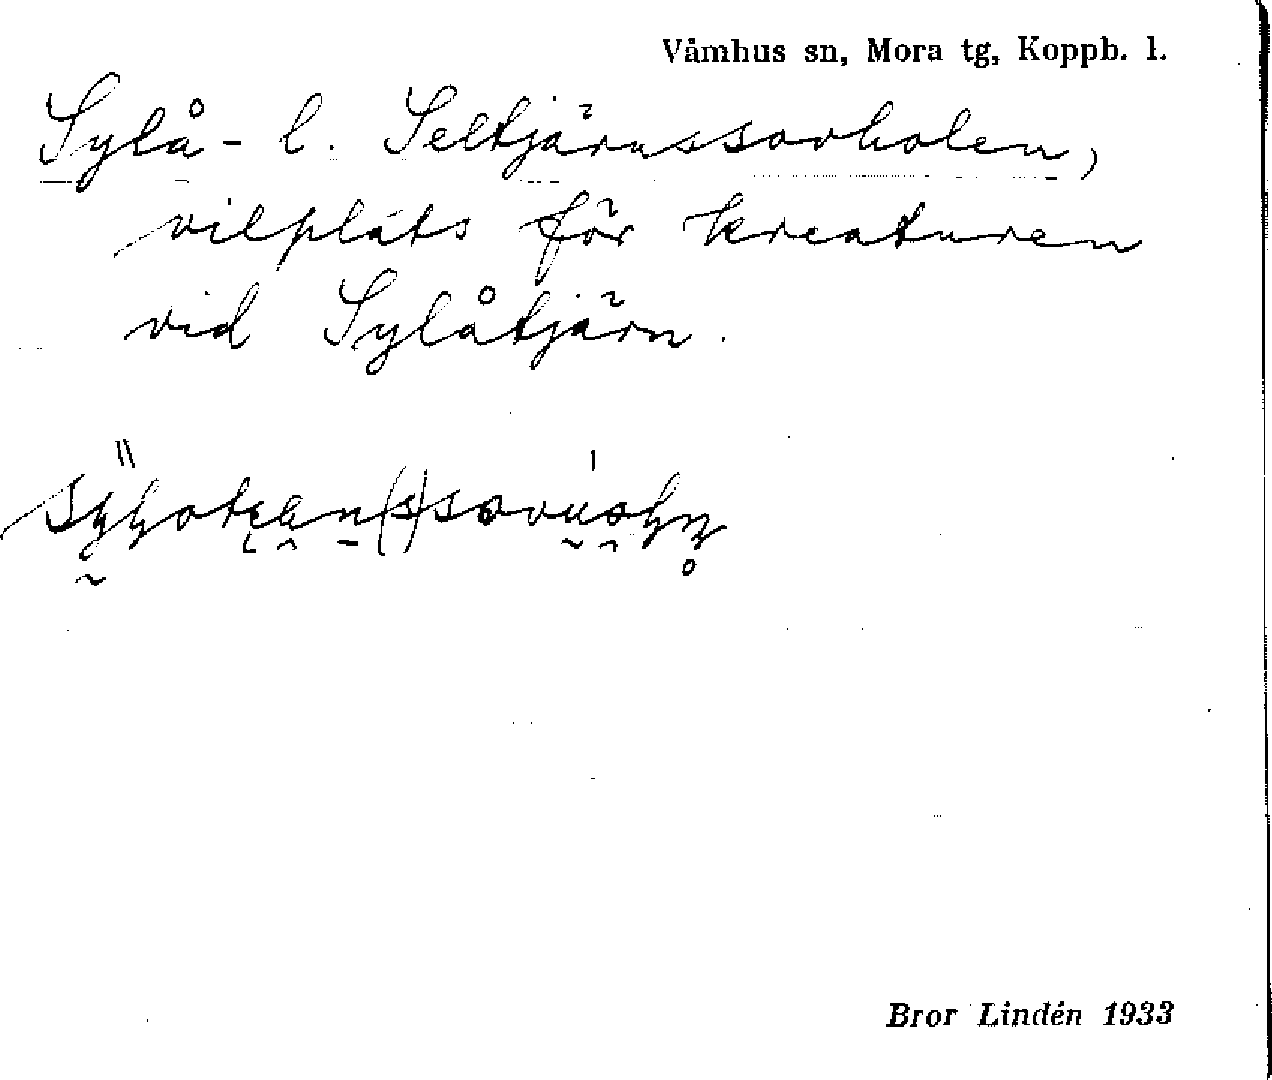 Våmhus sn, Mora tg, Koppb. l.
Sylå- l. Seltjärnssovholen,
vilplats för kreaturen
vid Sylåtjärn.
Bror Lindén 1933